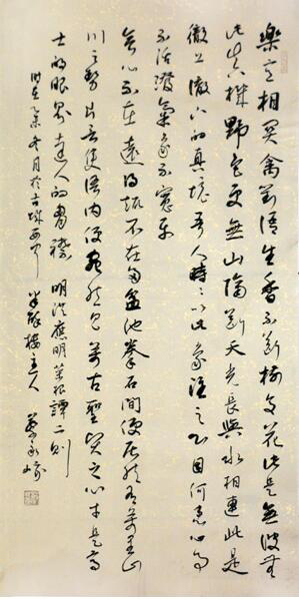 樂意相關禽對語生香不斷樹交花此是無彼無
此的真機野色更無山隔斷天光長與水相連此是
徹上徹下的真境吾人時時以此景象注之心目何患心思
不活潑氣象不寬平
會心不在遠得趣不在多盆池拳石間便居然有萬里山
川之勢片言語內便宛然見萬古聖賢之心才是高
士的眼界達人的胸襟 明洪應明菜根譚二則
時在冬月於古城西安 樓主人